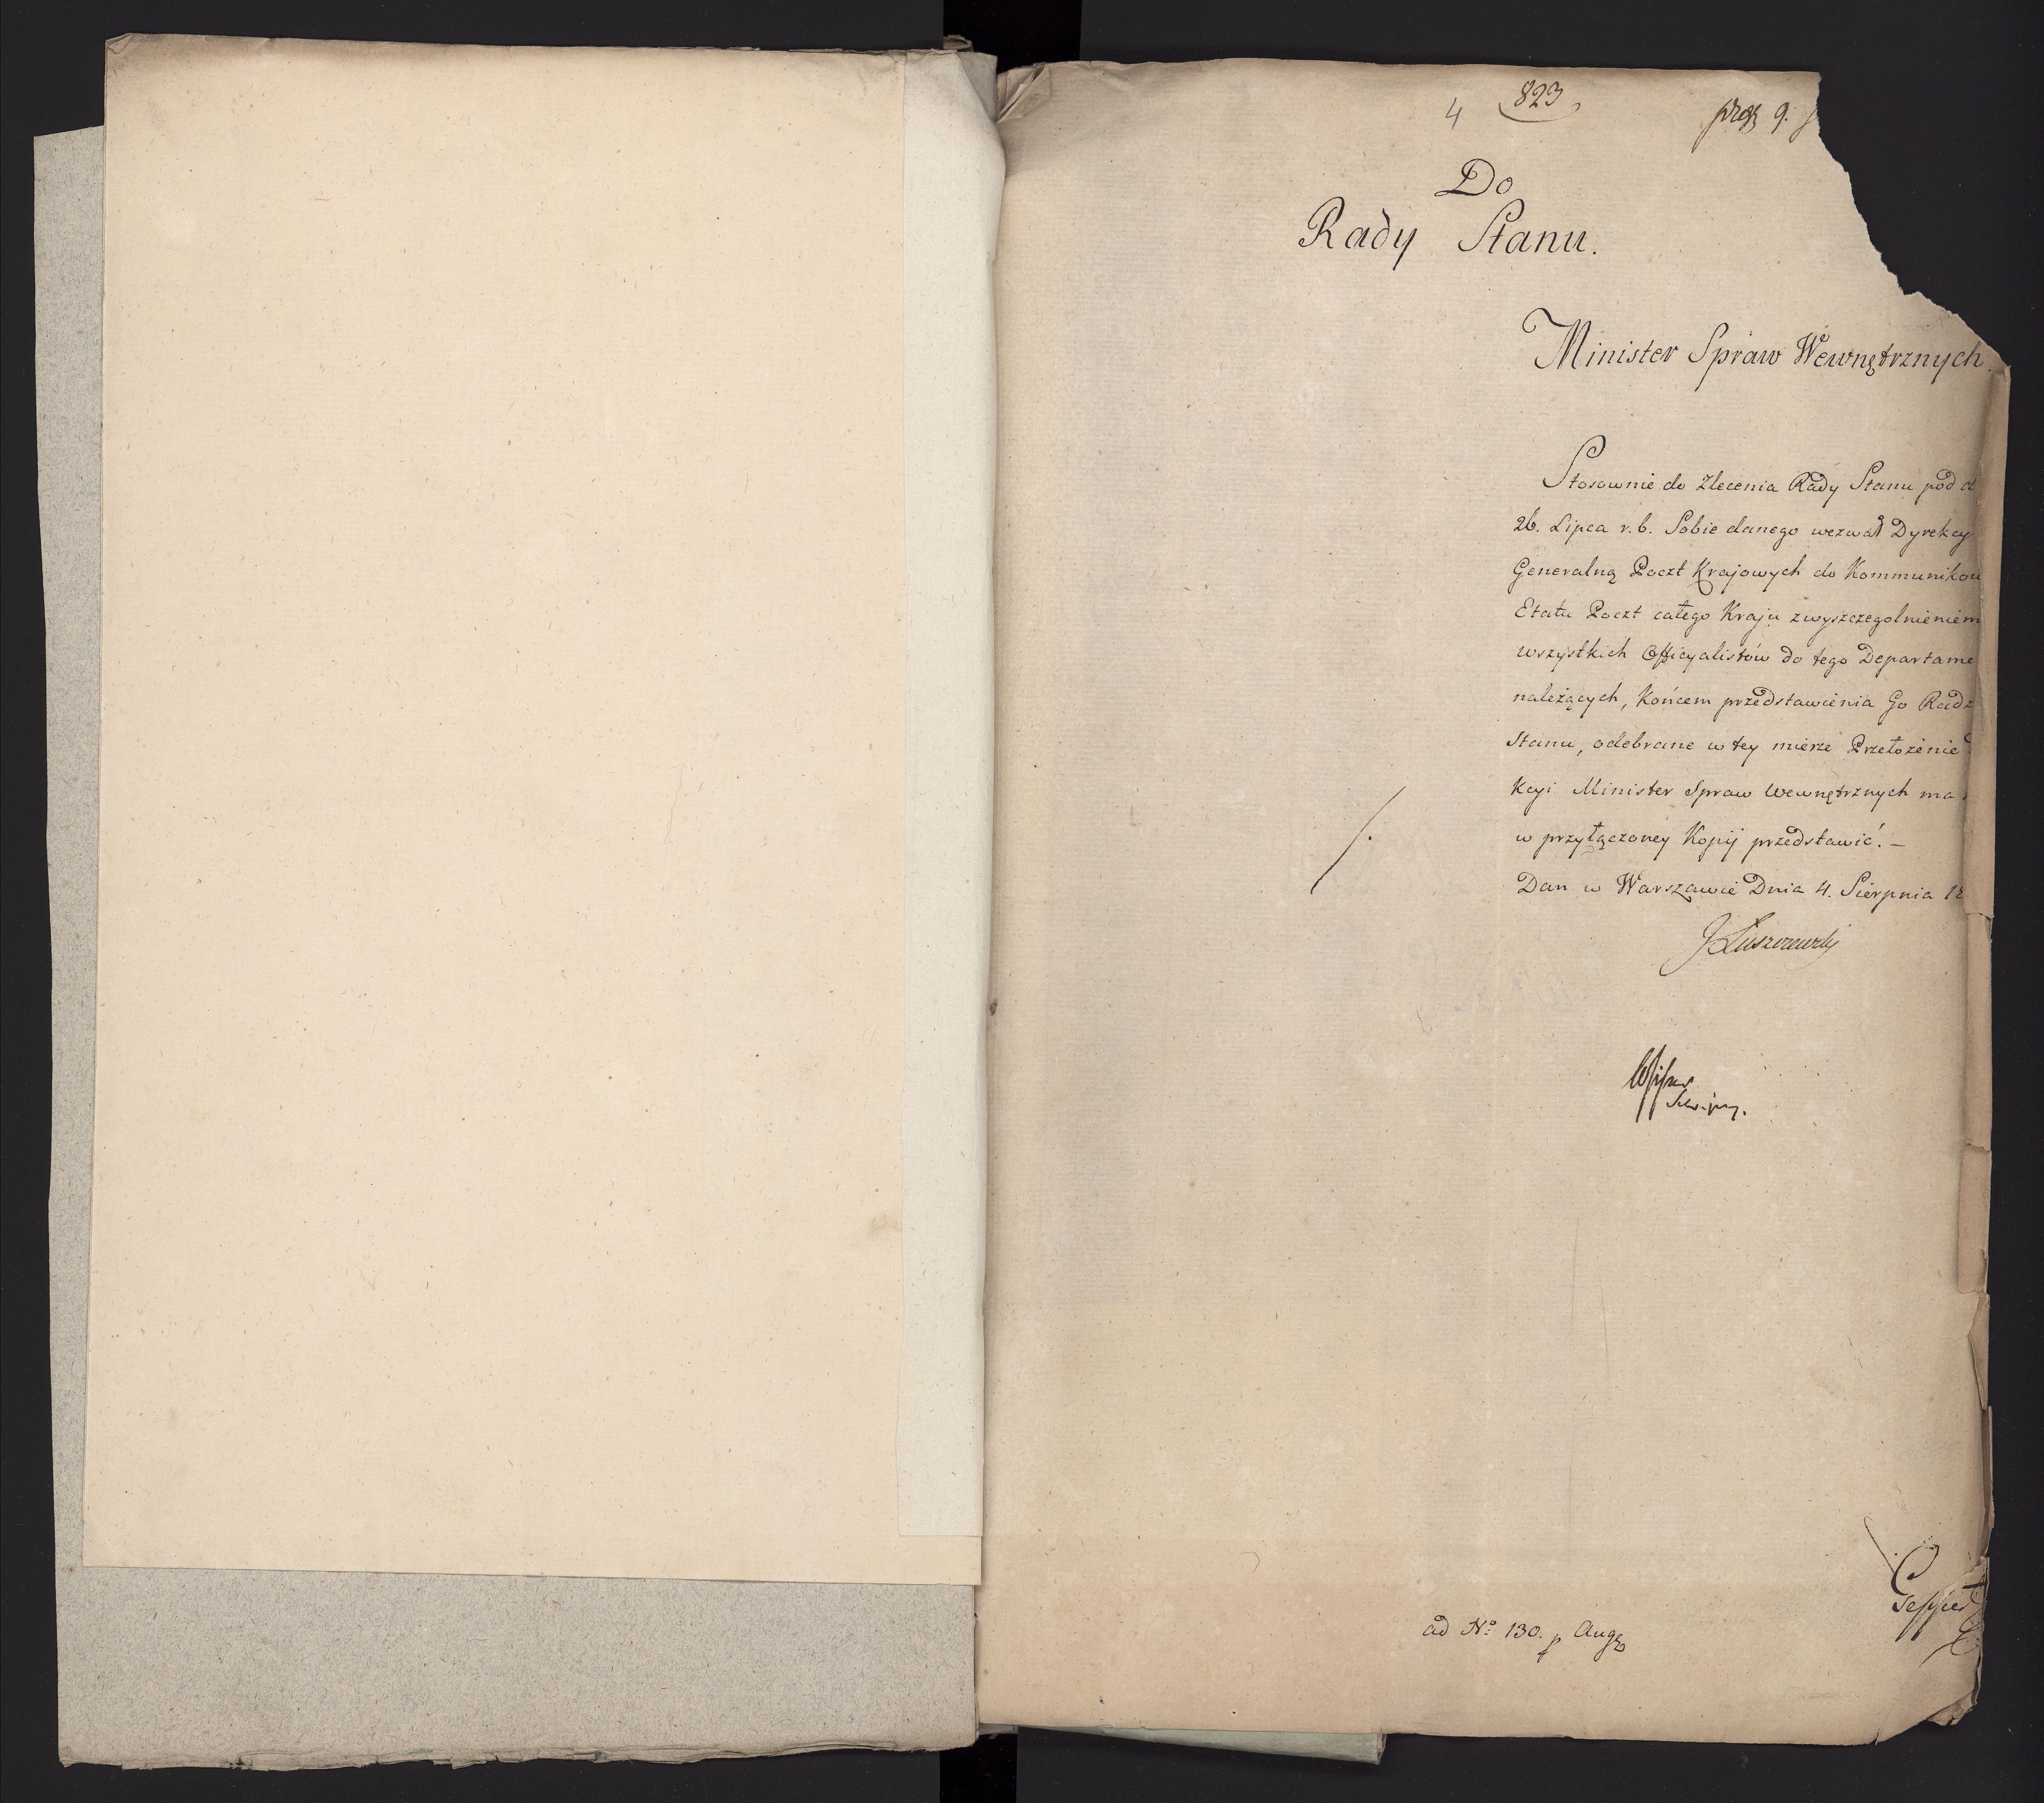 4 823
9.
Do
Rady Stanu.
Minister Spraw Wewnętrznych.
Stosownie do Zlecenia Rady Stanu pod d
26. Lipca r. b. Sobie danego wezwał Dyrekcy
Generalną Poczt Krajowych do Kommunikow
Etatu Poczt całego Kraju zwyszczegolnieniem
wszystkich Officyalistów do tego Departame
należących, Końcem przedstawienia Go Radz
Stanu, odebrane w tey mierze Przełożenie
Kcyi Minister Spraw Wewnętrznych ma
w przyłączoney Kopij przedstawić. –
Dan w Warszawie Dnia 4. Sierpnia 18
J Łuszczewski
ad No: 130. p Aug